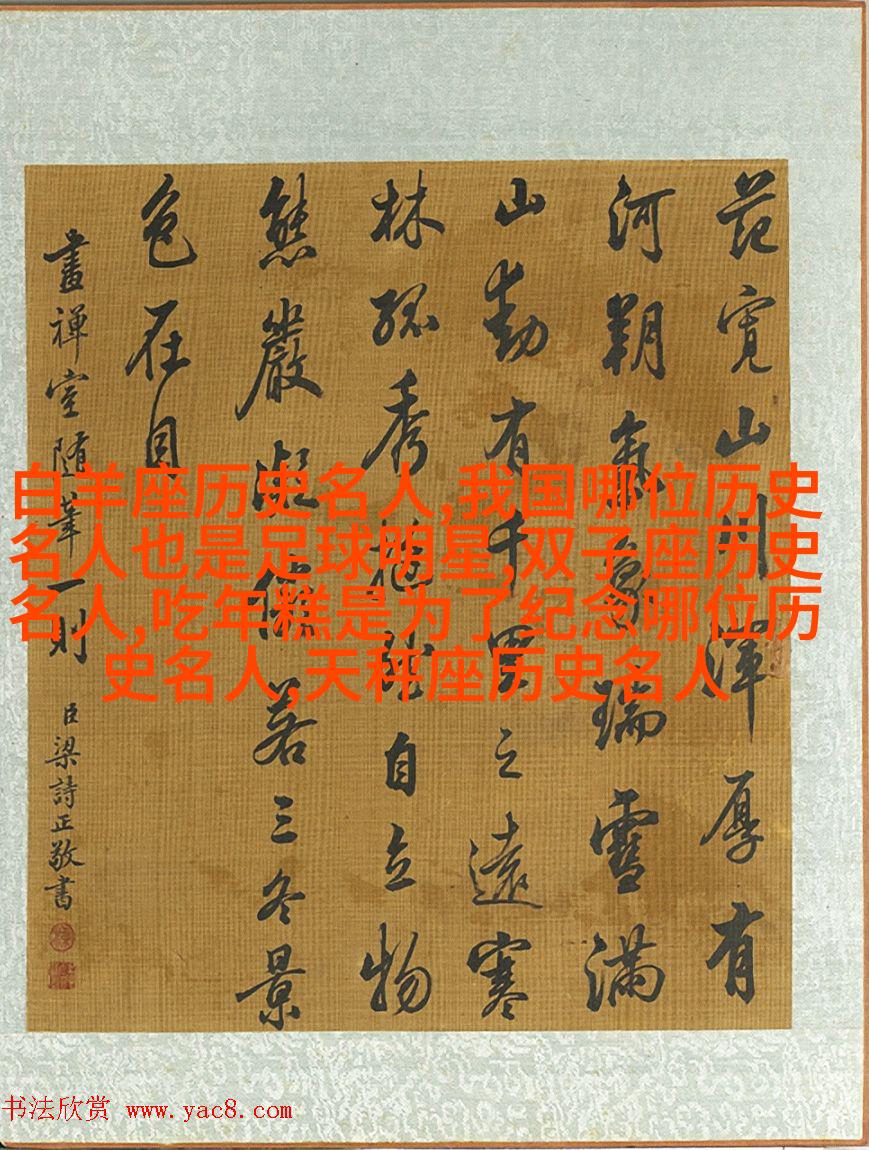 范寬山川渾厚有
河朔氣象瑞雪滿
山動有千里之遠寒
林孤秀挺然自立物
態嚴凝儼若三冬景
色在目
畫禪室随筆一則
臣梁詩正敬書
白羊座历史名人,我国哪位历史
名人也是足球明星,双子座历史
名人,吃年糕是为了纪念哪位历
史名人,天秤座历史名人
书法欣赏 www.yac8.com